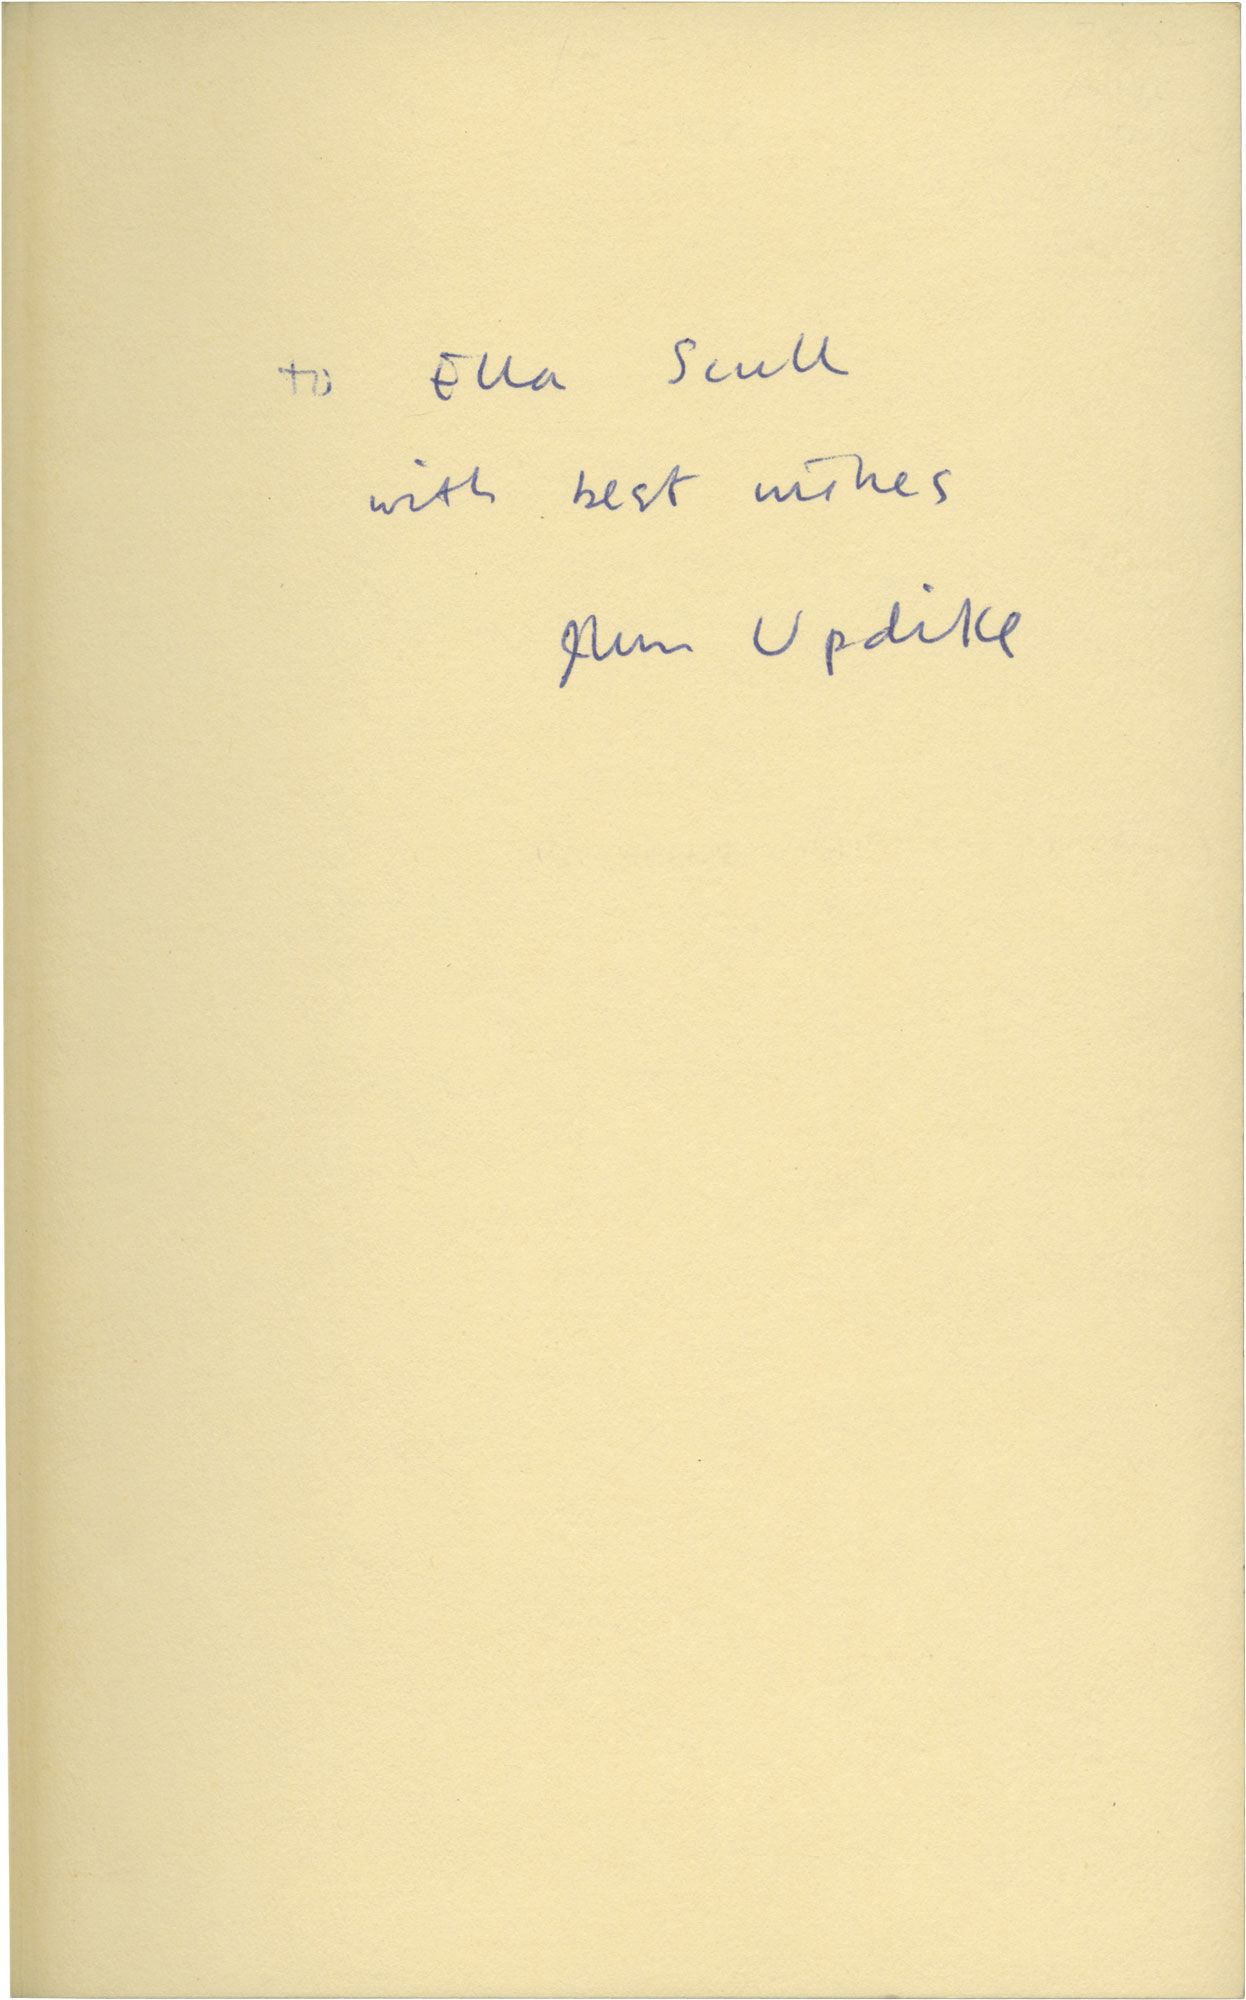 to Ella Scull
with best wishes
John Updike